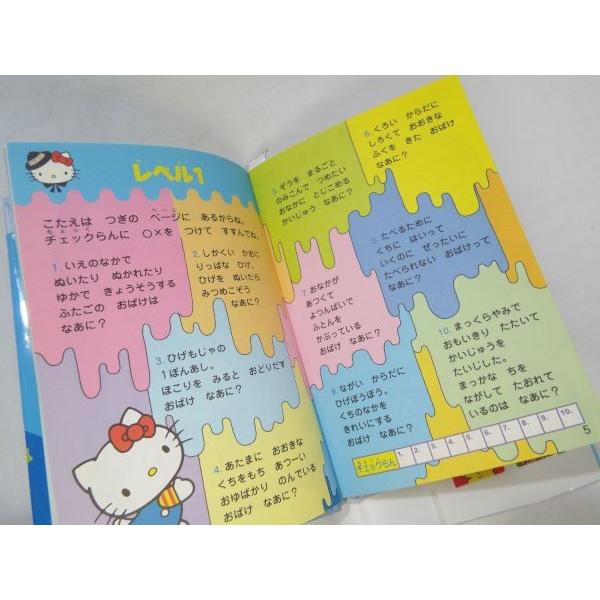 レベル1
こたえは つぎの ページに あるからね。
チェックらんに ○×を つけて すすんでね。
1. いえのなかで
ぬいたり ぬかれたり
ゆかで きょうそうする
ふたごの おばけは
なあに?
2. しかくい かおに
りっぱな ひげ。
ひげを ぬいたら
みつめこぞう
なあに?
3. ひげもじゃの
1ぽんあし。
ほこりを みると おどりだす
おばけ なあに?
4. あたまに おおきな
くちをもち あつーい
おゆばかり のんでいる
おばけ なあに?
5. ぞうを まるごと
のみこんで つめたい
おなかに とじこめる
かいじゅう なあに?
6. くろい からだに
しろくて おおきな
ふくを きた おばけ
なあに?
7. おなかが
あつくて
よつんばいで
ふとんを
かぶっている
おばけ なあに?
8. たべるために
くちに はいって
いくのに ぜったいに
たべられない おばけって
なあに?
9. ながい からだに
ひげぼうぼう。
くちのなかを
きれいにする
おばけ なあに?
10. まっくらやみで
おもいきり たたいて
かいじゅうを
たいじした。
まっかな ちを
ながして たおれて
いるのは なあに?
チェックらん
1. 2. 3. 4. 5. 6. 7. 8. 9. 10.
5